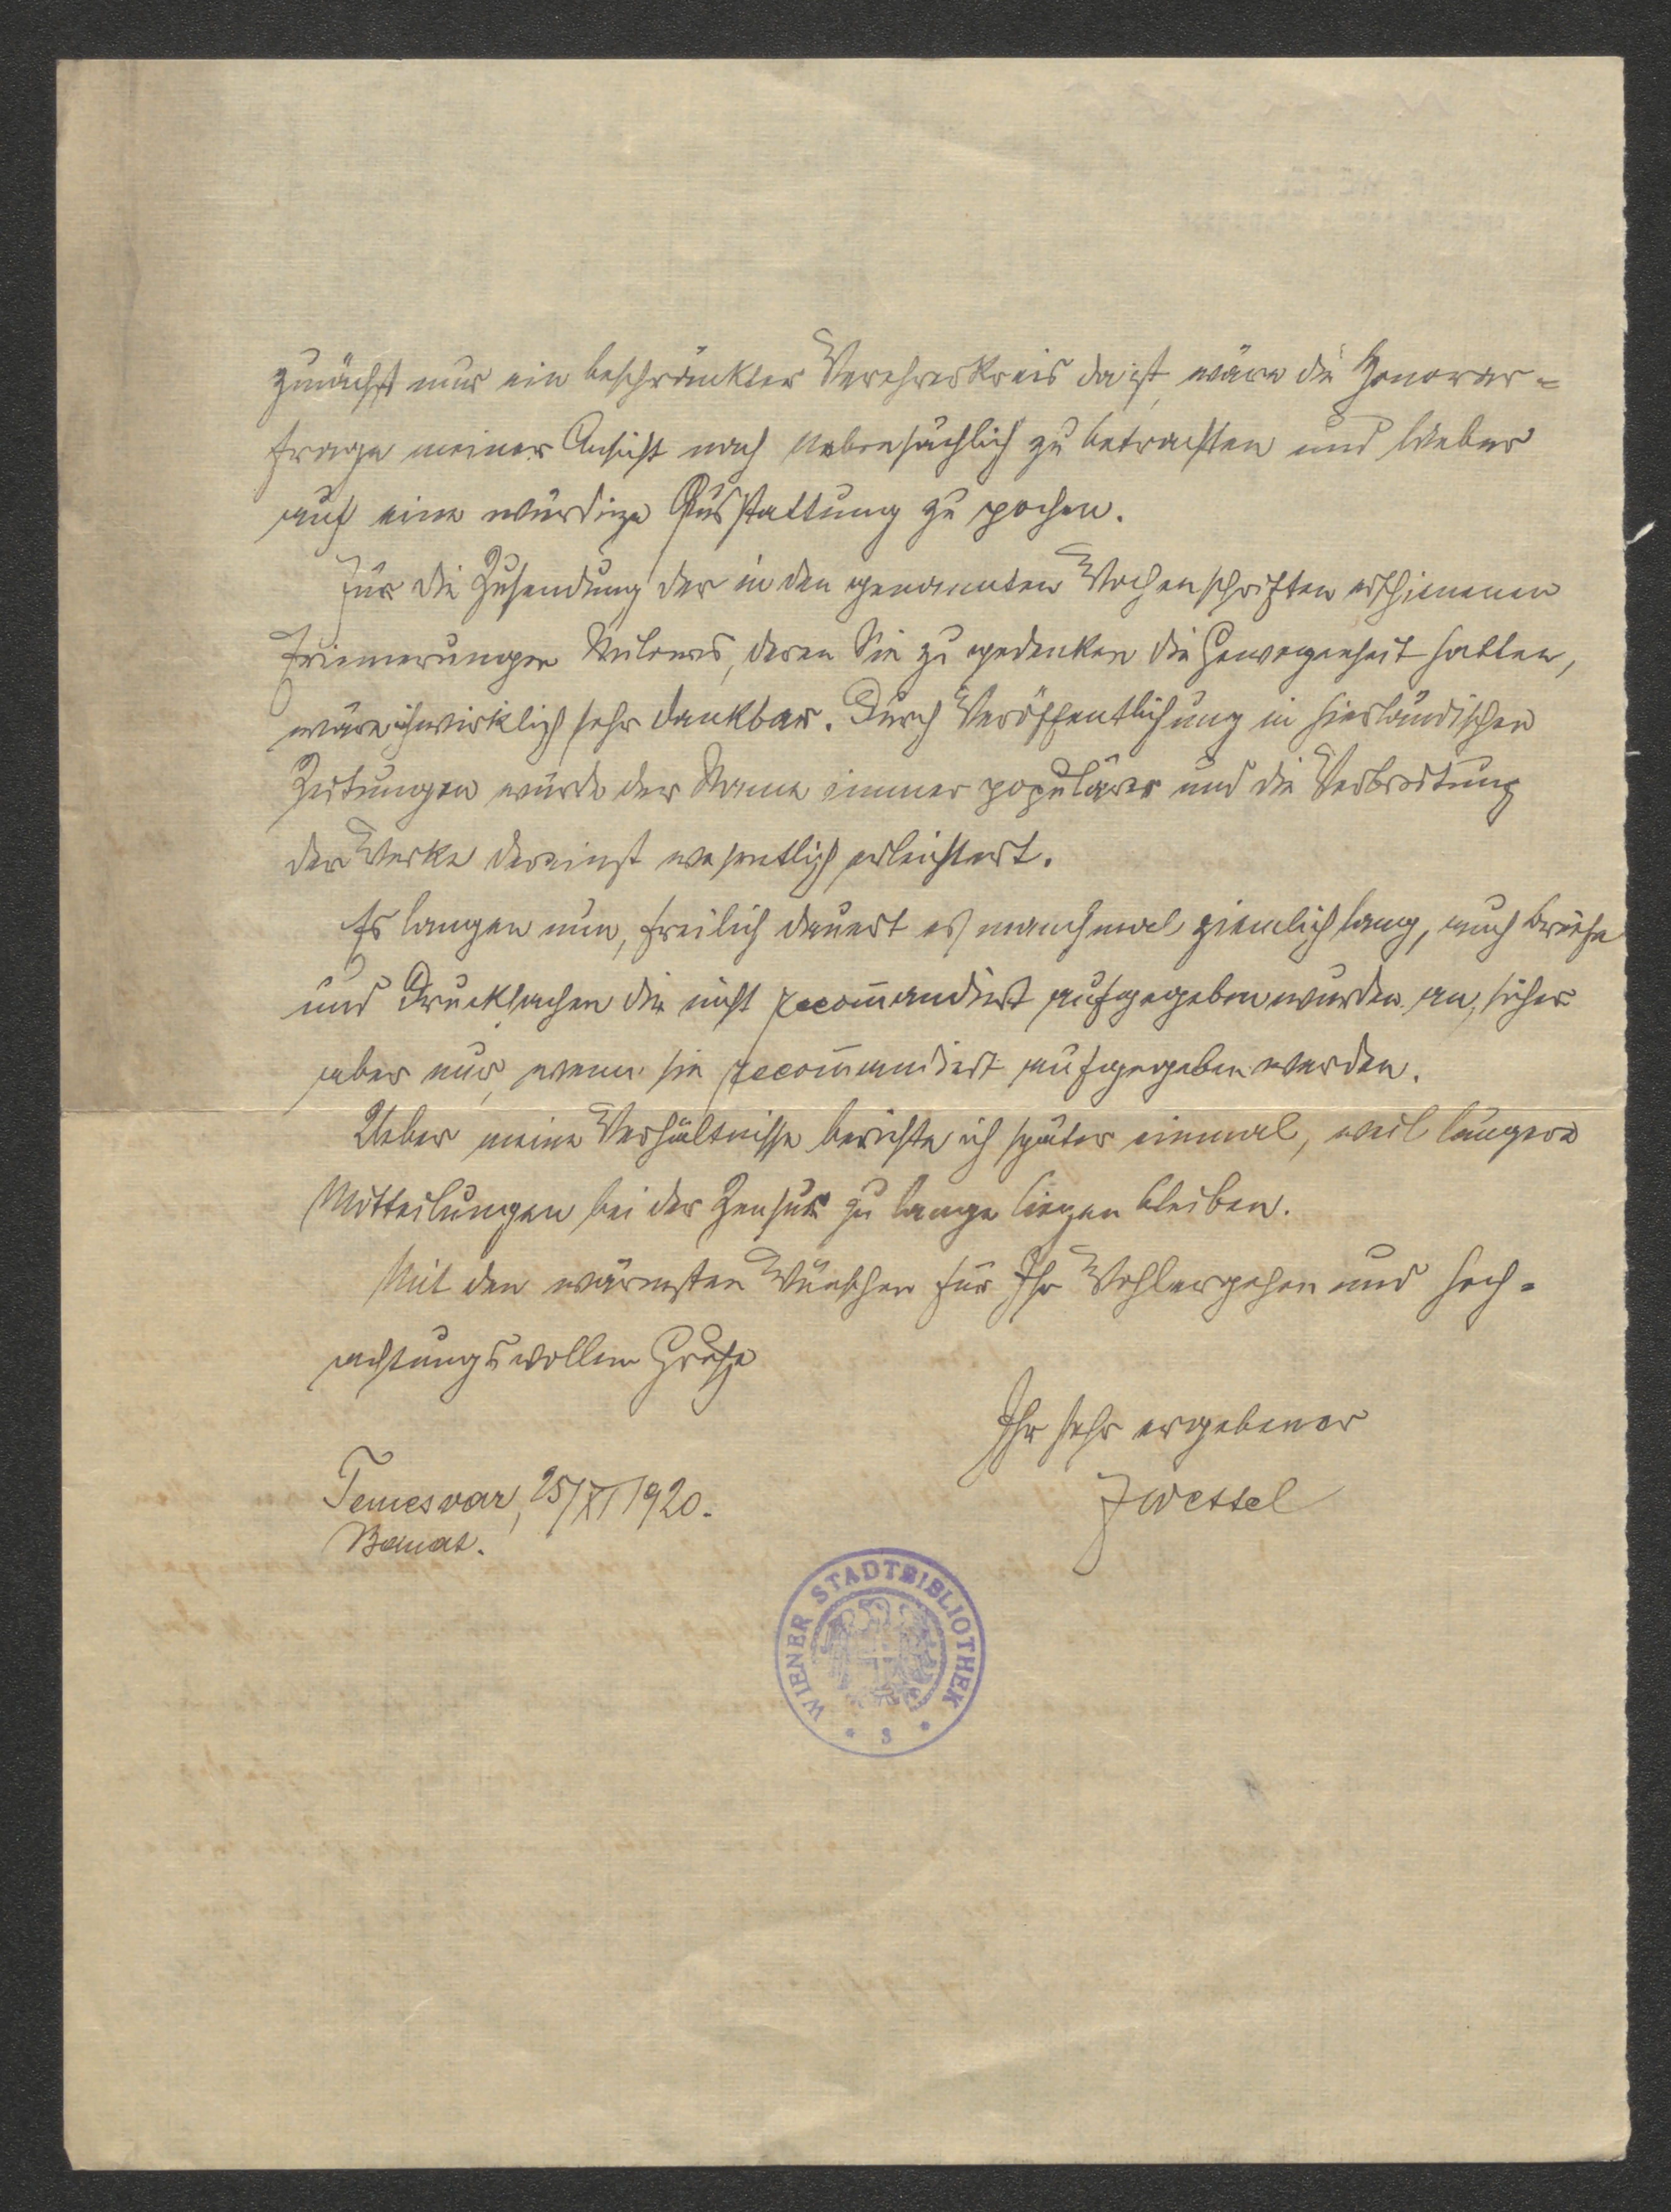 zunächst nur ein beschränkter Verehrerkreis da ist, wäre die Honorar=
frage meiner Ansicht nach nebensächlich zu betrachten und lieber
auf eine würdige Ausstattung zu pochen.
Für die Zusendung der in den genannten Wochenschriften erschienenen
Erinnerungen, deren Sie zu gedenken die Gewogenheit hatten,
wäre ich wirklich sehr dankbar. Durch Veröffentlichung in hierländischen
Zeitungen würde der Name immer populärer und die Verbreitung
der Werke dereinst wesentlich erleichtert.
Es langen nun, freilich dauert es manchmal ziemlich lang, auch Briefe
und Drucksachen die nicht recom̄andiert aufgegeben wurden an, sicher
aber nur, wenn sie recom̄andiert aufgegeben werden.
Ueber meine Verhältnisse berichte ich später einmal, weil längere
Mitteilungen bei der Zensur zu lange liegen bleiben.
Mit den wärmsten Wünschen für Ihr Wohlergehen und hoch=
achtungsvollem Gruße
Ihr sehr ergebener
JWettel
Temesvar, 25/XI 1920.
Banat.
WIENER STADTBIBLIOTHEK
* 3 *